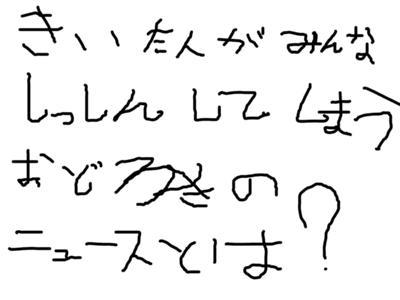 きいたんがみんな
しっしんしてしまう
おどろきの
ニュースとは?